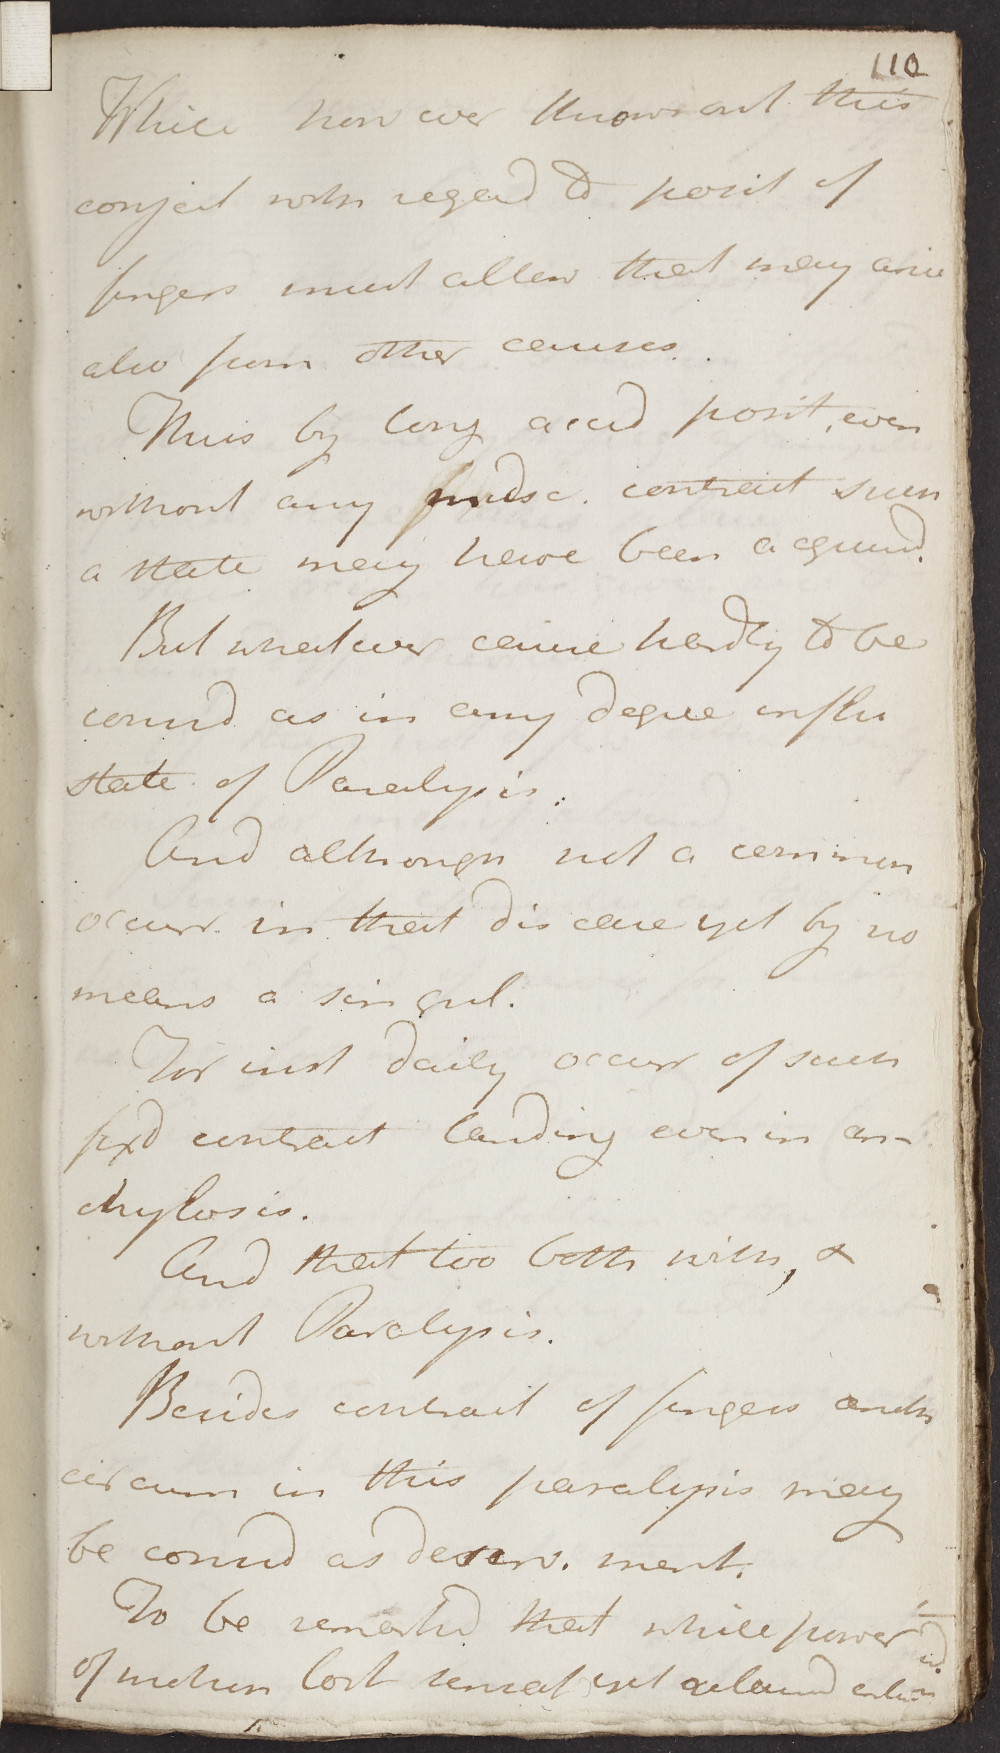 110
While however throw out this
conject with regard to posit of
fingers must allow that may arise
also from other causes.
Thus by long accd posit, even
without any contract such
a state may have been acquired.
But whatever cause hardly to be
consd as in any degree influ
state of Paralysis.
And although not a common
occurr. in that disease yet by no
means a singul.
For inst daily occur of such
fixd contract landing even in an-
chylosis.
And that too both with, &
without Paralysis.
Besides contract of fingers anoth
circum in this paralysis may
be consd as deserv. ment.
To be remarkd that while power
of motion lost sensat yet